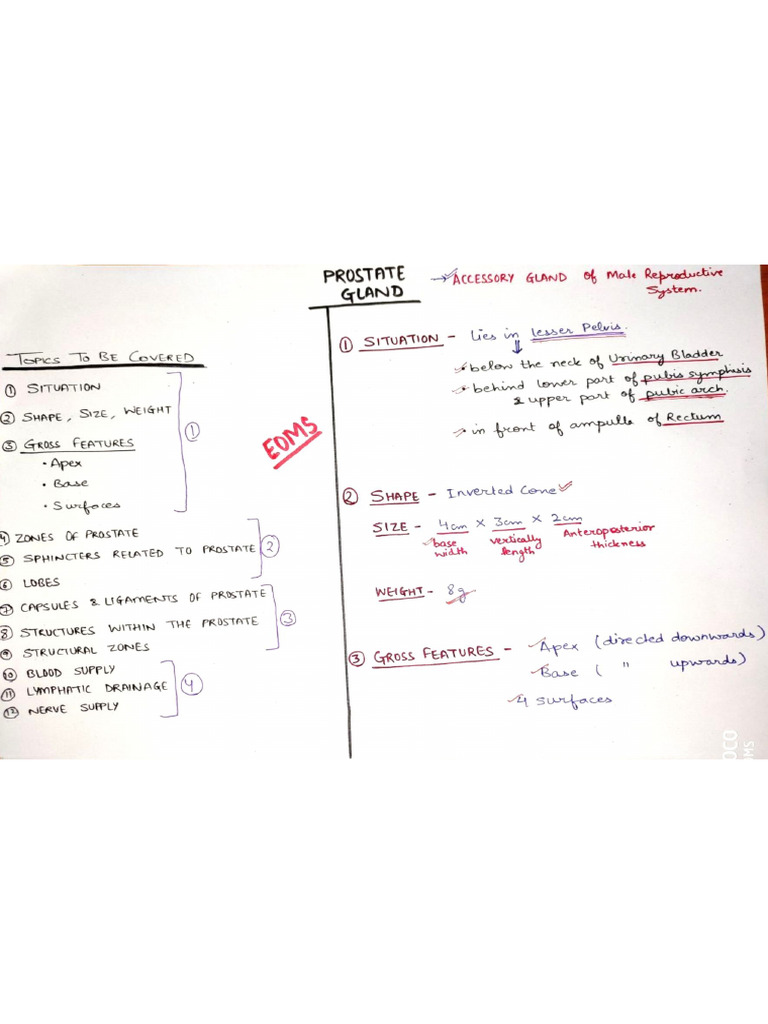 PROSTATE GLAND
→ ACCESSORY GLAND of Male Reproductive System.
TOPICS TO BE COVERED
① SITUATION
② SHAPE, SIZE, WEIGHT
③ GROSS FEATURES
• Apex
• Base
• Surfaces
①
④ ZONES OF PROSTATE
⑤ SPHINCTERS RELATED TO PROSTATE
⑥ LOBES
②
⑦ CAPSULES & LIGAMENTS OF PROSTATE
⑧ STRUCTURES WITHIN THE PROSTATE
⑨ STRUCTURAL ZONES
③
⑩ BLOOD SUPPLY
⑪ LYMPHATIC DRAINAGE
⑫ NERVE SUPPLY
④
EOMS
① SITUATION - Lies in lesser Pelvis.
below the neck of Urinary Bladder
behind lower part of pubis symphisis
& upper part of pubic arch.
in front of ampulla of Rectum
② SHAPE - Inverted Cone
SIZE - 4cm × 3cm × 2cm
base width
vertically length
Anteroposterior thickness
WEIGHT - 8g
③ GROSS FEATURES - Apex (directed downwards)
Base ( " upwards)
4 surfaces